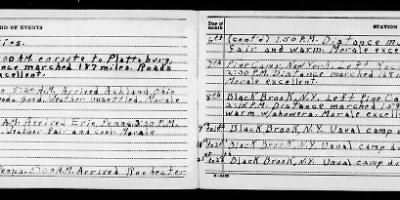 RD OF EVENTS
ies.
:00 A.M. enroute to Plattsburg,
nce marched 187 miles. Roads
xcellent.
5:00 A.M. Arrived Ashland, Ohio
Roads good. Weather unsettled. Morale
A.M. Arrived Erie, Penna. 3:30 P.M.
Weather fair and cool. Morale
Penna. 5:00 A.M. Arrived Rochester
Day of Month
STATION
6th (cont'd) 1:50 P.M. Distance ma
fair and warm. Morale exce
7th Pine Camp, New York. Left
2:30 P.M. Distance marched 18
Morale excellent.
8th Black Brook, N.Y. Left Pine Ca
2:15 P.M. Distance marched
warm w/showers. Morale excell
Black Brook, N.Y. Usual camp d
Black Brook, N.Y. Usual camp d
Black Brook, N.Y. Usual camp du